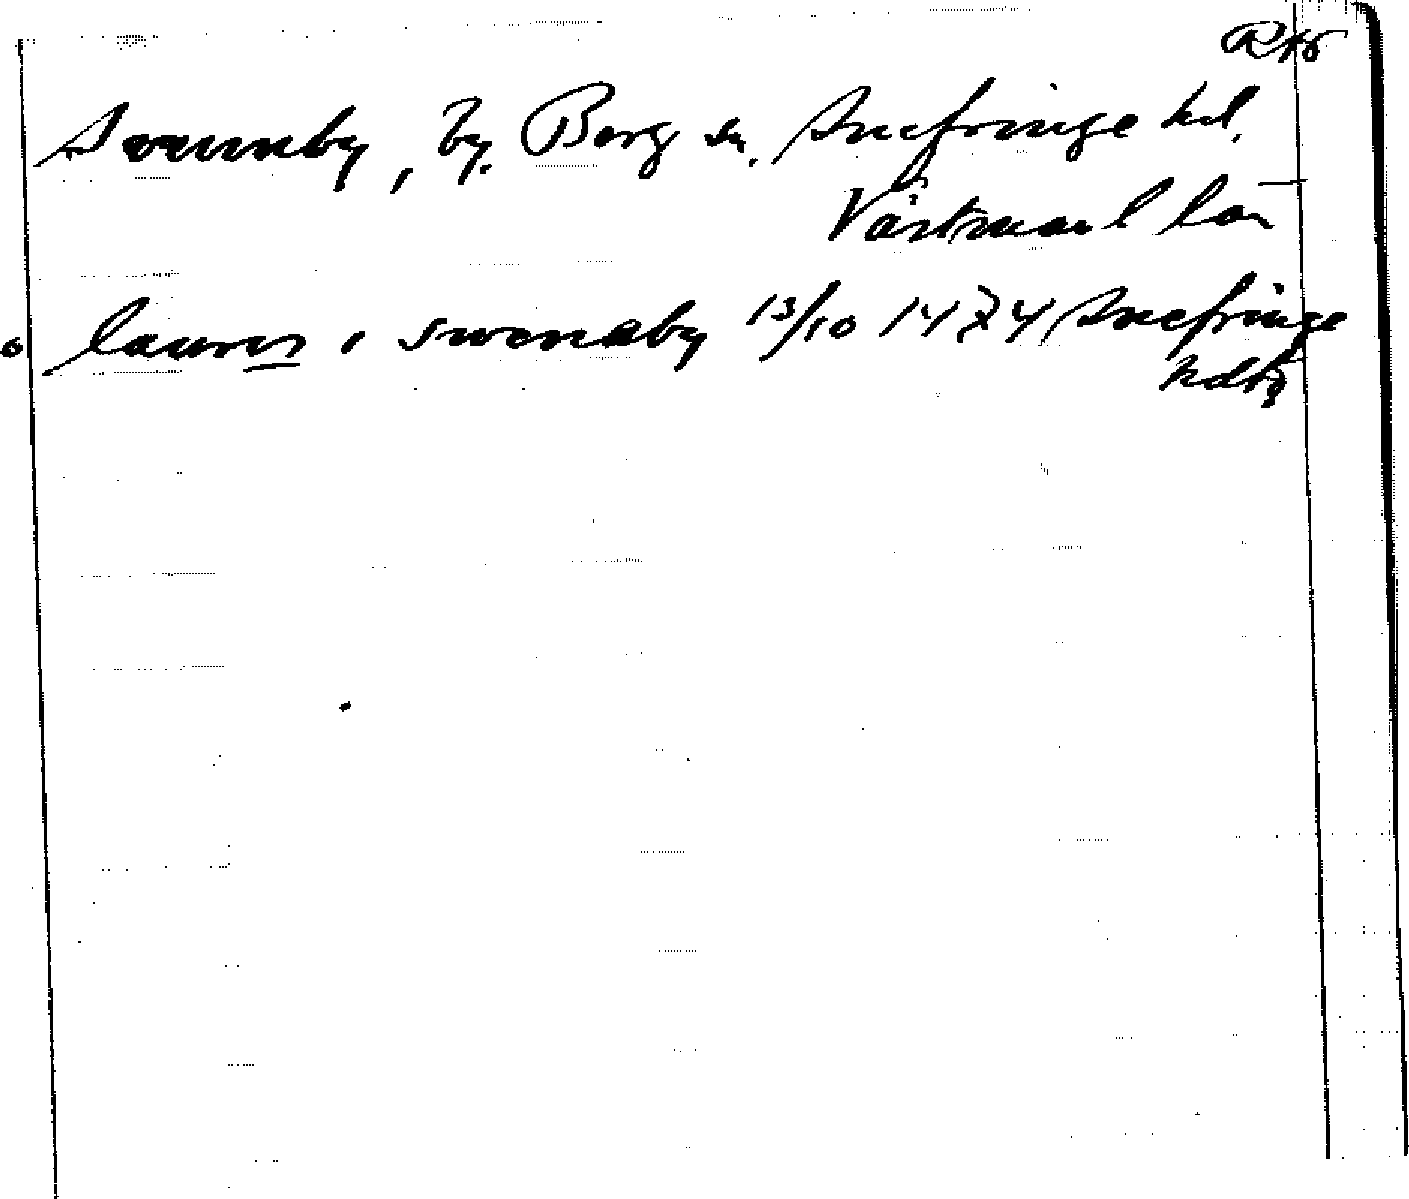 RAÖ
Svennby, by, Berg sn, Snefringe hd,
Västmanl län
laurens i swenaby 13/10 1474 Snefringe
hdbr